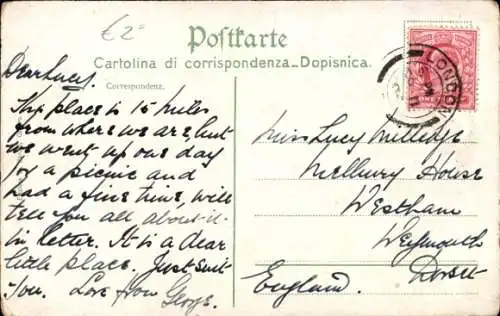 £2
Postkarte
Cartolina di corrispondenza_Dopisnica.
Correspondenz.
Dear Lucy.
This place is 15 miles
from where we are but
we went up one day
for a picnic and
had a fine time, will
tell you all about it
in letter. It is a dear
little place. Just suit
you. Love from George.
LONDON
Miss Lucy Milledge
Melbury House
Westham
Weymouth
Dorset
England.